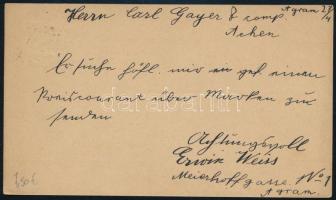 Herrn Carl Gayer & comp. Agram 29/4
Achen
Ersuche höfl. mir en gef. einen
Preiscourant über Marken zu
senden
Achtungsvoll
Erwin Weiss
Meierhoffgasse No 1
Agram.